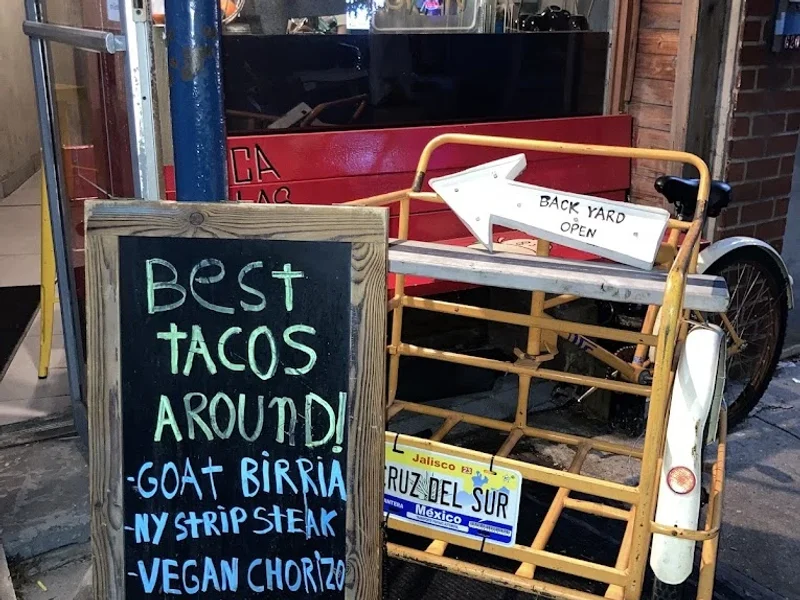 BEST
TACOS
AROUND!
-GOAT BIRRIA
-NY STRIP STEAK
-VEGAN CHORIZO
BACK YARD
OPEN
Jalisco 23
CRUZ DEL SUR
México